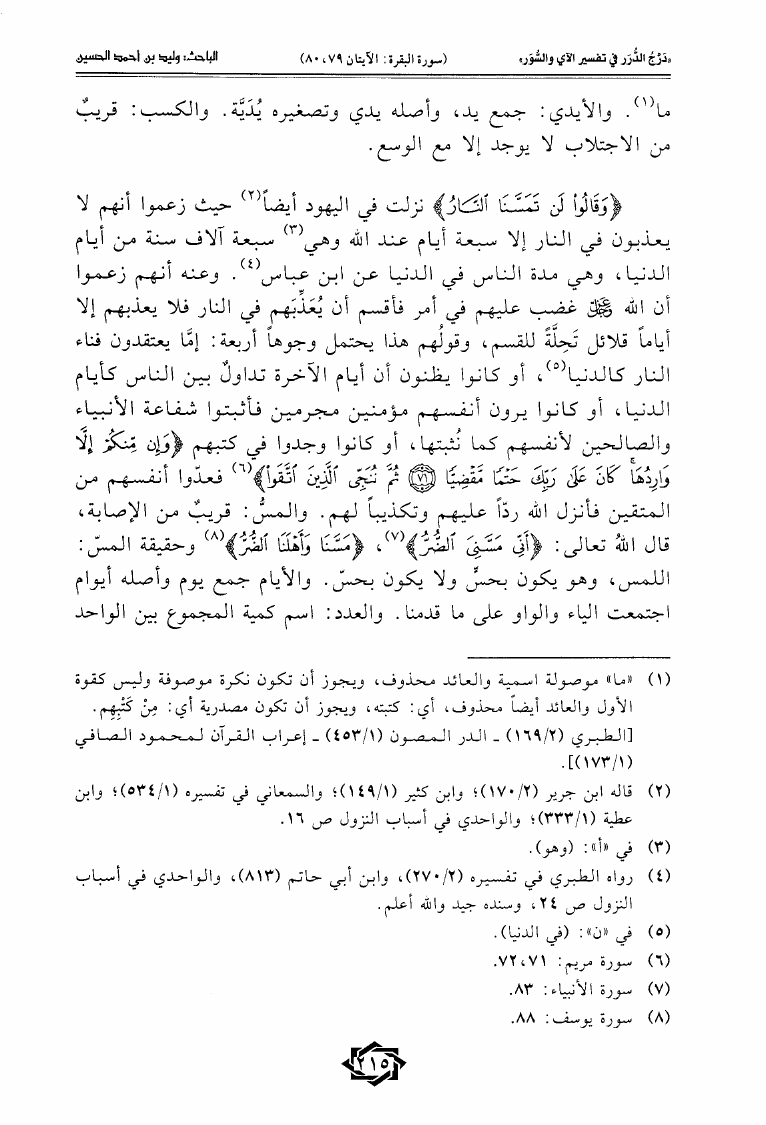 «دَرْجُ الدُّرَر في تفسير الآي والسُّوَر» (سورة البقرة: الآيتان ٧٩، ٨٠) الباحث: وليد بن أحمد الحسين
ما(١). والأيدي: جمع يد، وأصله يدي وتصغيره يُدَيَّة. والكسب: قريبٌ
من الاجتلاب لا يوجد إلا مع الوسع.
﴿وَقَالُواْ لَن تَمَسَّنَا ٱلنَّارُ﴾ نزلت في اليهود أيضاً(٢) حيث زعموا أنهم لا
يعذبون في النار إلا سبعة أيام عند الله وهي(٣) سبعة آلاف سنة من أيام
الدنيا، وهي مدة الناس في الدنيا عن ابن عباس(٤). وعنه أنهم زعموا
أن الله ﷻ غضب عليهم في أمر فأقسم أن يُعَذِّبَهم في النار فلا يعذبهم إلا
أياماً قلائل تَحِلَّةً للقسم، وقولُهم هذا يحتمل وجوهاً أربعة: إمَّا يعتقدون فناء
النار كالدنيا(٥)، أو كانوا يظنون أن أيام الآخرة تداولٌ بين الناس كأيام
الدنيا، أو كانوا يرون أنفسهم مؤمنين مجرمين فأثبتوا شفاعة الأنبياء
والصالحين لأنفسهم كما نُثبتها، أو كانوا وجدوا في كتبهم ﴿وَإِن مِّنكُمْ إِلَّا
وَارِدُهَا ۚ كَانَ عَلَىٰ رَبِّكَ حَتْمًا مَّقْضِيًّا ۝٧١ ثُمَّ نُنَجِّى ٱلَّذِينَ ٱتَّقَوا۟﴾(٦) فعدّوا أنفسهم من
المتقين فأنزل الله ردّاً عليهم وتكذيباً لهم. والمسُّ: قريبٌ من الإصابة،
قال اللهُ تعالى: ﴿أَنِّى مَسَّنِىَ ٱلضُّرُّ﴾(٧)، ﴿مَسَّنَا وَأَهْلَنَا ٱلضُّرُّ﴾(٨) وحقيقة المسّ:
اللمس، وهو يكون بحسٍّ ولا يكون بحسّ. والأيام جمع يوم وأصله أيوام
اجتمعت الياء والواو على ما قدمنا. والعدد: اسم كمية المجموع بين الواحد
(١) «ما» موصولة اسمية والعائد محذوف، ويجوز أن تكون نكرة موصوفة وليس كقوة
الأول والعائد أيضاً محذوف، أي: كتبته، ويجوز أن تكون مصدرية أي: مِنْ كَتْبِهِم.
[الطبري (١٦٩/٢) ـ الدر المصون (٤٥٣/١) ـ إعراب القرآن لمحمود الصافي
(١٧٣/١)].
(٢) قاله ابن جرير (١٧٠/٢)؛ وابن كثير (١٤٩/١)؛ والسمعاني في تفسيره (٥٣٤/١)؛ وابن
عطية (٣٣٣/١)؛ والواحدي في أسباب النزول ص ١٦.
(٣) في «أ»: (وهو).
(٤) رواه الطبري في تفسيره (٢٧٠/٢)، وابن أبي حاتم (٨١٣)، والواحدي في أسباب
النزول ص ٢٤، وسنده جيد والله أعلم.
(٥) في «ن»: (في الدنيا).
(٦) سورة مريم: ٧١، ٧٢.
(٧) سورة الأنبياء: ٨٣.
(٨) سورة يوسف: ٨٨.
٢١٥